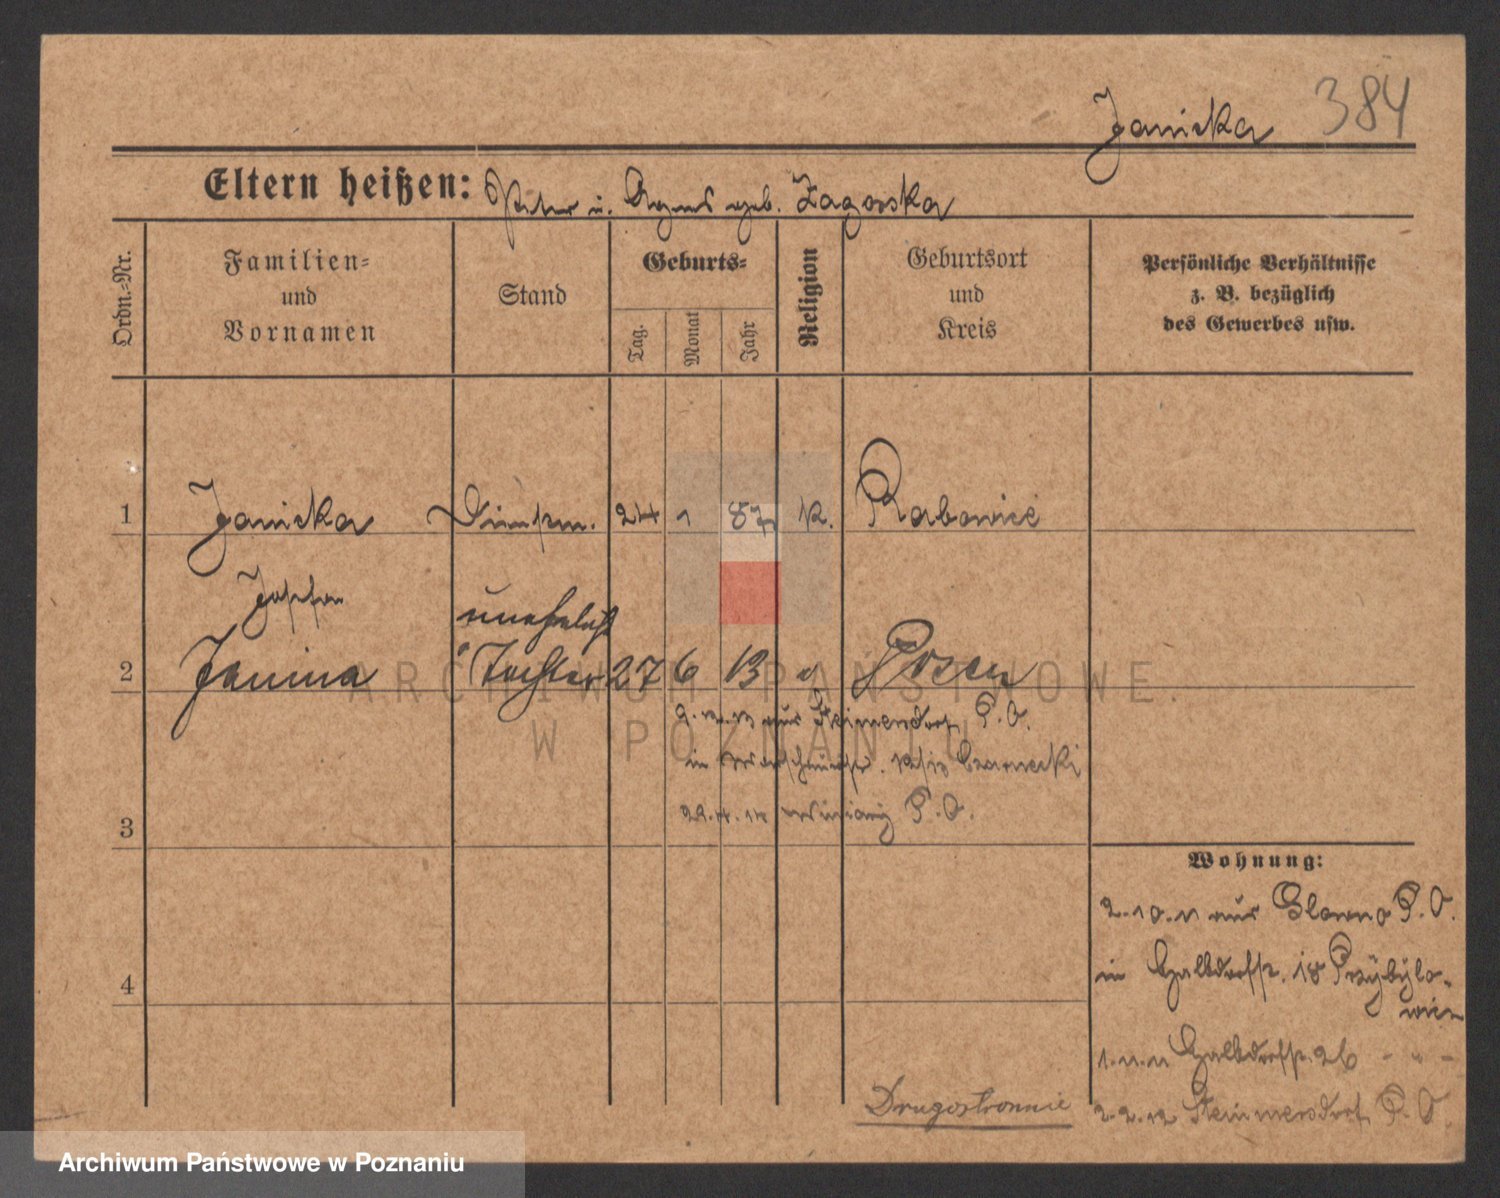 384
Janicka
Eltern heißen: Peter u. Agnes geb. Zagorska
Ordn.-Nr.
Familien-
und
Vornamen
Stand
Geburts-
Tag.
Monat
Jahr
Religion
Geburtsort
und
Kreis
Persönliche Verhältnisse
z. B. bezüglich
des Gewerbes usw.
1 Janicka 24 1 87 K. Rabowice
Josefa unehelich
2 Janina Tochter 27 6 13 " Posen
aus P. O.
in 12/13 Czarnecki
P. O.
3
4
Wohnung:
2.10.11 aus Glowno P. O.
in 18 Przybylo-
wicz
1.11.11 26 - " -
2.2.12 P. O.
Drugostronnie
ARCHIWUM PAŃSTWOWE
W POZNANIU
Archiwum Państwowe w Poznaniu